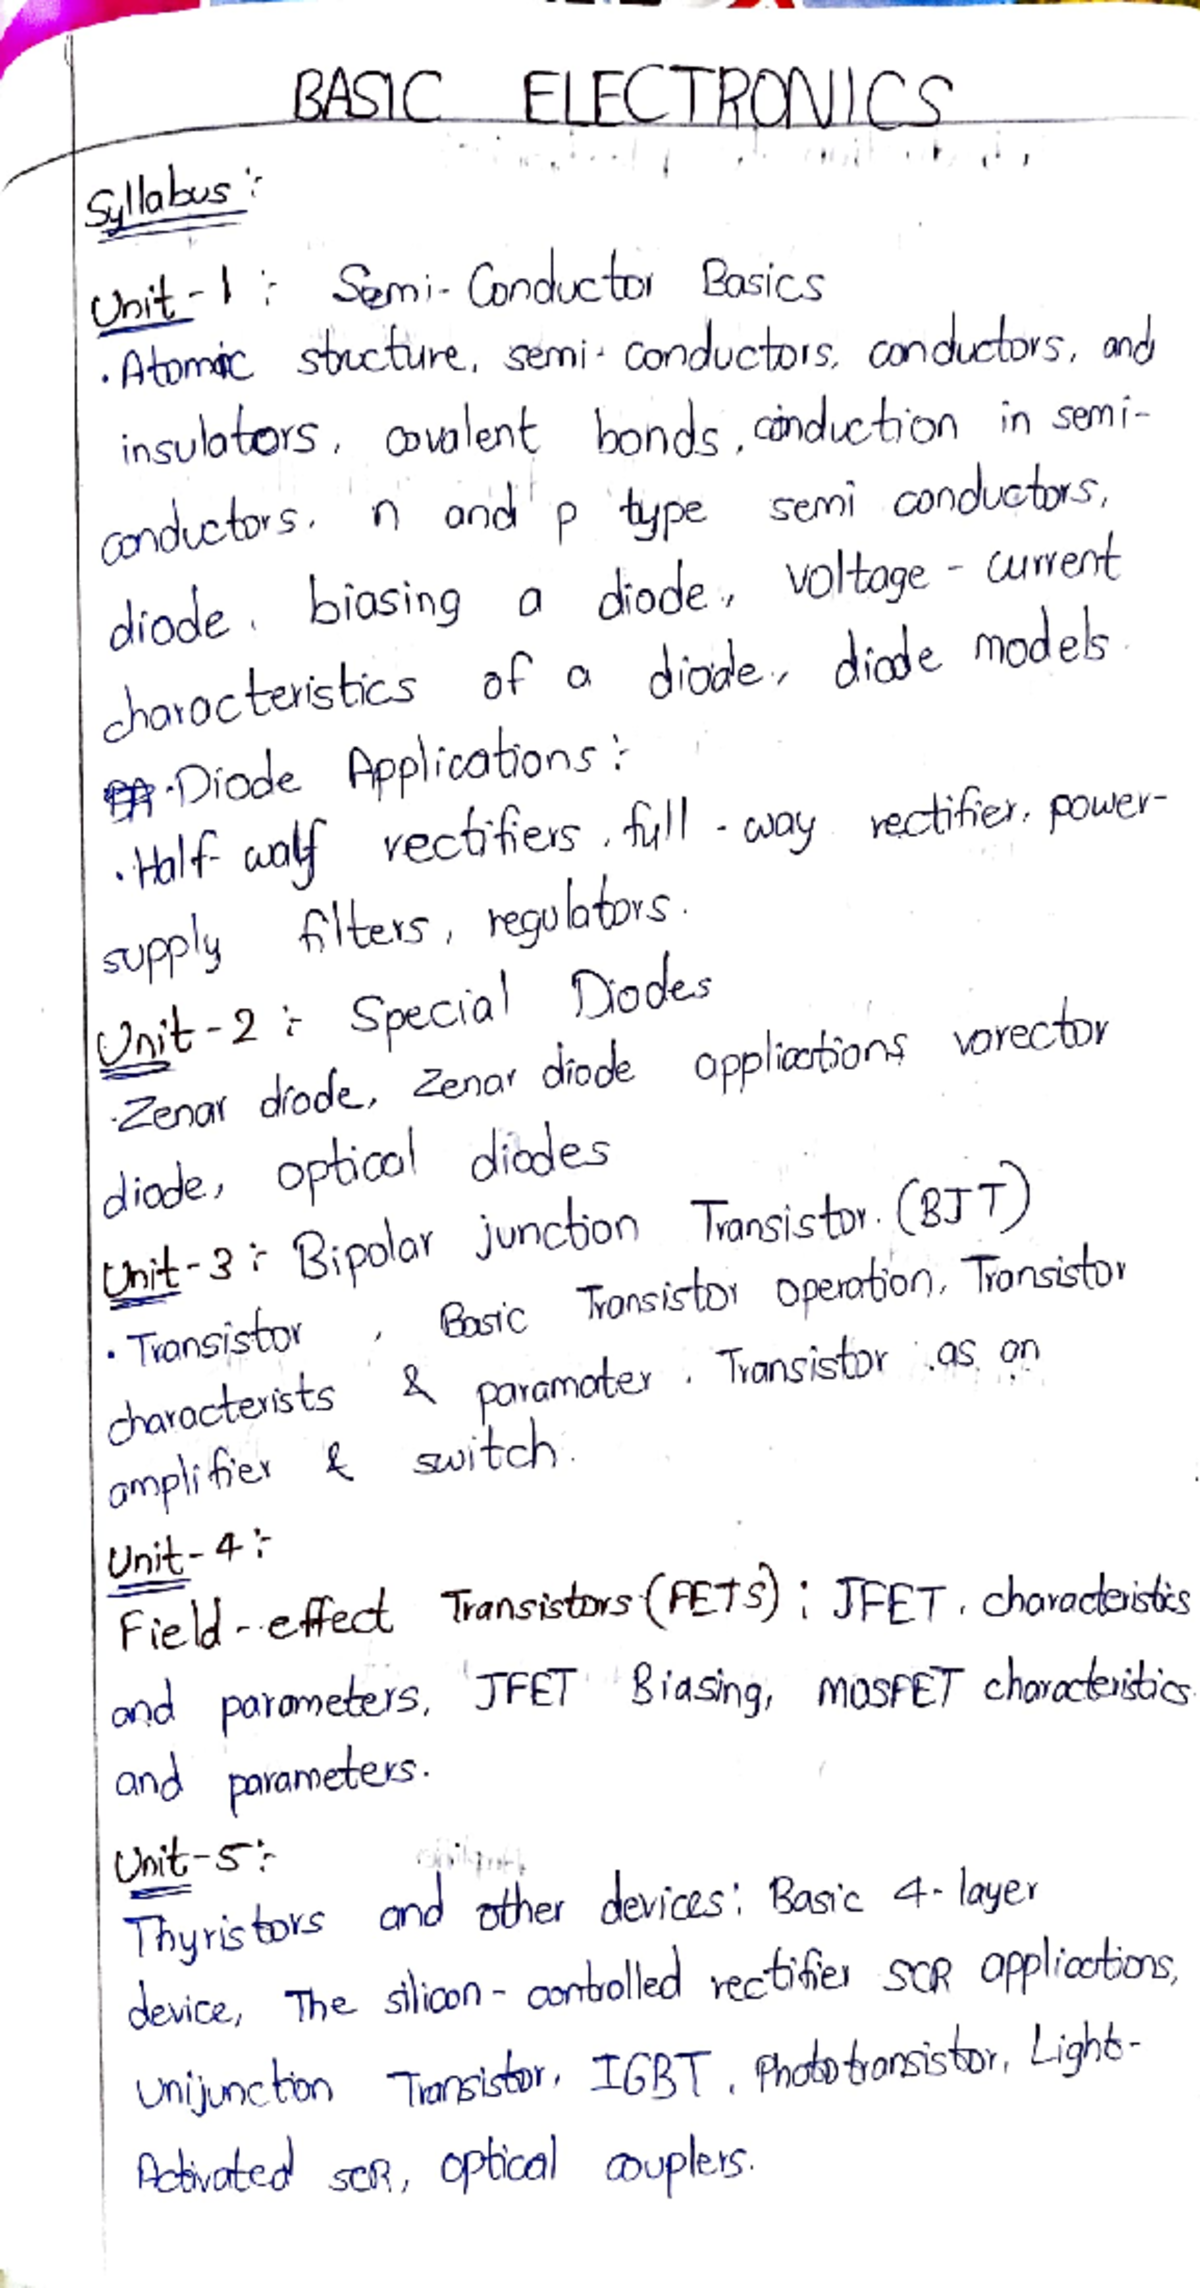 BASIC ELECTRONICS
Syllabus :-
Unit-1 :- Semi-Conductor Basics
• Atomic structure, semi-conductors, conductors, and
insulators, covalent bonds, conduction in semi-
conductors, n and p type semi conductors,
diode, biasing a diode, voltage - current
characteristics of a diode, diode models.
• Diode Applications :-
• Half-walf rectifiers, full-way rectifier, power-
supply filters, regulators.
Unit-2 :- Special Diodes
• Zenar diode, Zenar diode applications varector
diode, optical diodes
Unit-3 :- Bipolar junction Transistor. (BJT)
• Transistor , Basic Transistor operation, Transistor
characterists & paramater, Transistor as an
amplifier & switch.
Unit-4 :-
Field-effect Transistors (FETS) : JFET, characteristics
and parameters, JFET Biasing, MOSFET characteristics
and parameters.
Unit-5 :-
Thyristors and other devices: Basic 4-layer
device, The silicon-controlled rectifier SCR applications,
unijunction Transistor, IGBT, Phototransistor, Light-
Activated SCR, optical couplers.